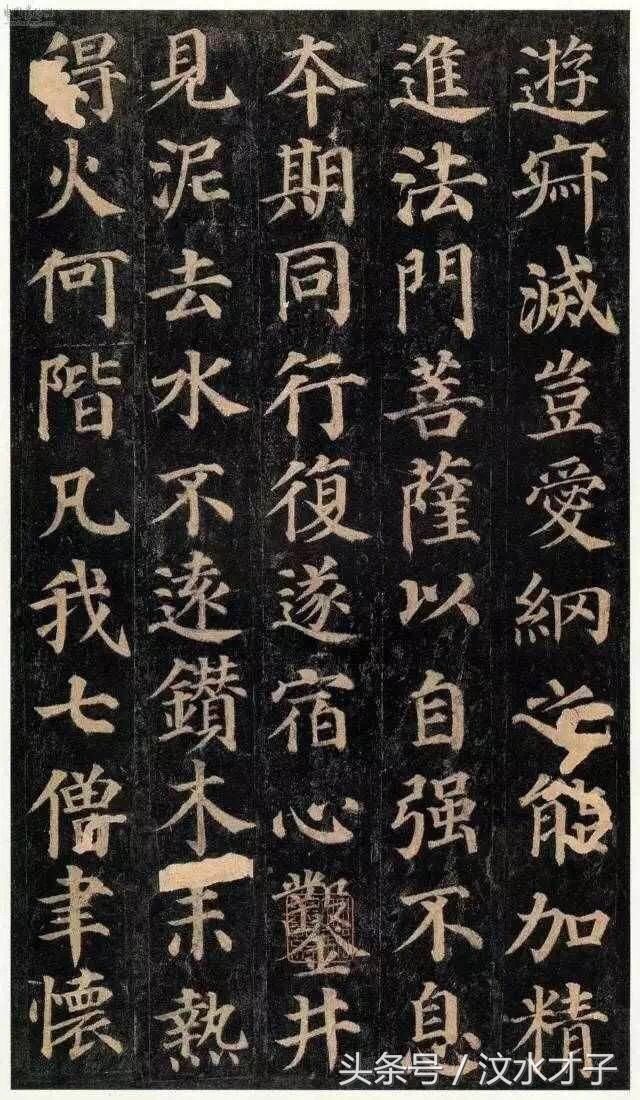 遊寂滅豈愛網之能加精
進法門菩薩以自强不息
本期同行復遂宿心鑿井
見泥去水不遠鑽木未熱
得火何階凡我七僧聿懷
头条号 / 汶水才子